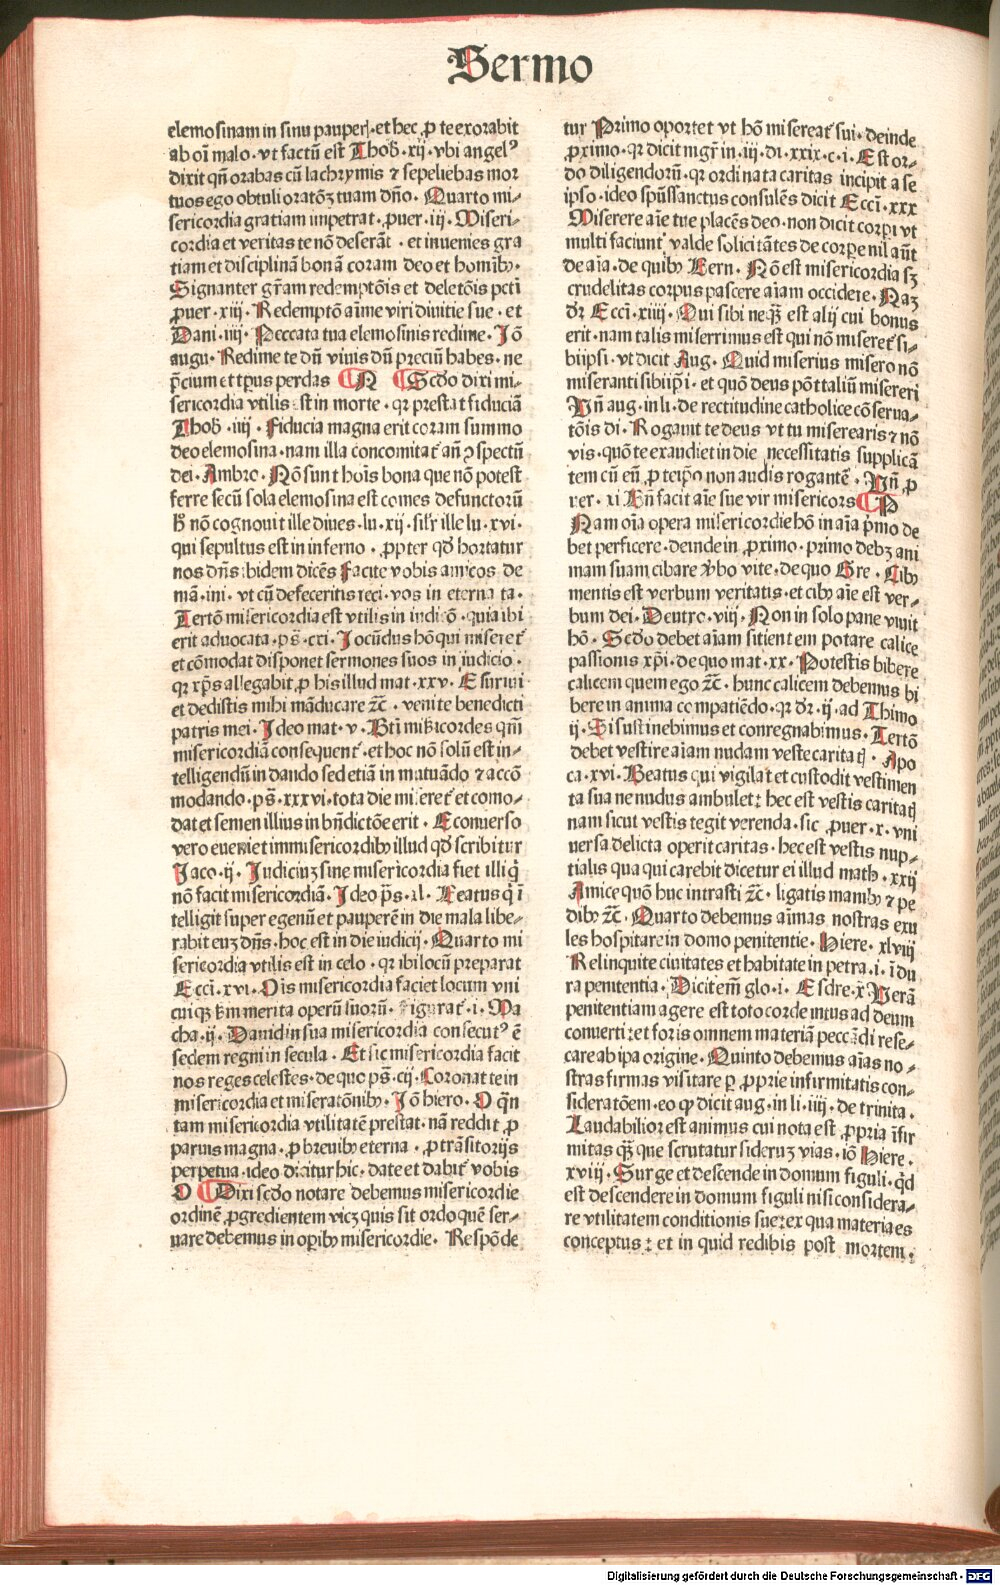 Sermo
elemosinam in sinu pauperꝭ · et hec ꝓ te exorabit
ab oī malo · vt factū est Thob̄ · xij · vbi angelꝰ
dixit qn̄ orabas cū lachrymis ⁊ sepeliebas mor
tuos ego obtuli oratōꝫ tuam dn̄o · Quarto mi⸗
sericordia gratiam impetrat · ꝓuer · iij · Miseri⸗
cordia et veritas te nō deserāt · et inuenies gra
tiam et disciplinā bonā coram deo et homībꝫ ·
Signanter gr̄am redemptōis et deletōis pcti
ꝓuer · xiij · Redemptō aīme viri diuitie sue · et
Dani · iiij · Peccata tua elemosinis redime · Jō
augu · Redime te dū viuis dū preciū habes · ne
p̄cium et tp̄us perdas ¶ N ¶ Scd̄o dixi mi⸗
sericordia vtilis est in morte · qꝛ prestat fiduciā
Thob̄ · iiij · Fiducia magna erit coram summo
deo elemosina · nam illa concomitat᷑ an̄ ꝯspectū
dei · Ambro · Nō sunt hoīs bona que nō potest
ferre secū sola elemosina est comes defunctorū
h̄ nō cognouit ille diues · lu · xij · silr̄ ille lu · xvi ·
qui sepultus est in inferno · ꝓpter qd̄ hortatur
nos dn̄s ibidem dicēs Facite vobis amicos de
mā · ini · vt cū defeceritis reci · vos in eterna ta ·
Tertō misericordia est vtilis in iudicō · quia ibi
erit aduocata · ps̄ · cxi · Jocūdus hō qui miseret᷑
et cōmodat disponet sermones suos in judicio ·
qꝛ xp̄s allegabit ꝓ his illud mat · xxv · Esuriui
et dedistis mihi māducare ⁊c̄ · venite benedicti
patris mei · Jdeo mat · v · Bti miẜicordes qm̄
misericordiā consequent᷑ · et hoc nō solū est in⸗
telligendū in dando sed etiā in mutuādo ⁊ accō
modando · ps̄ · xxxvi · tota die miseret᷑ et como⸗
dat et semen illius in bn̄dictōe erit · Econuerso
vero eueniet immisericordibꝫ illud qd̄ scribitur
Jaco · ij · Judiciuꝫ sine misericordia fiet illi qͥ
nō facit misericordiā · Jdeo ps̄ · xl · Beatus qͥ ī
telligit super egenū et pauperē in die mala libe⸗
rabit euꝫ dn̄s · hoc est in die iudicij · Quarto mi
sericordia vtilis est in celo · qꝛ ibi locū preparat
Ecci · xvi · Oīs misericordia faciet locum vni
cuiqꝫ ẜm merita operū suorū · Figurat᷑ · i · Ma
cha · ij · Dauid in sua misericordia consecutꝰ ē
sedem regni in secula · Et sic misericordia facit
nos reges celestes · de quo ps̄ · cij · Coronat te in
misericordia et miseratōnibꝫ · Jō hiero · O qn̄
tam misericordia vtilitatē prestat · nā reddit ꝓ
paruis magna · ꝓ breuibꝫ eterna · ꝓ trāsitorijs
perpetua · ideo dicitur hic · date et dabit᷑ vobis
O ¶ Dixi scd̄o notare debemus misericordie
ordinē ꝓgredientem vicꝫ quis sit ordo quē ser⸗
uare debemus in oꝑibꝫ misericordie · Respōde
tur Primo oportet vt hō misereat᷑ sui · deinde
ꝓximo · qꝛ dicit mgr̄ in · iij · di · xxix · c · i · Est or⸗
do diligendorū · qꝛ ordinata caritas incipit a se
ipso · ideo spūssanctus consulēs dicit Ecci · xxx
Miserere aīe tue placēs deo · non dicit corpi vt
multi faciunt᷑ valde solicitātes de corpe nil aūt
de aīa · de quibꝫ Bern · Nō est misericordia sꝫ
crudelitas corpus pascere aīam occidere · Naꝫ
dr̄ Ecci · xiiij · Qui sibi neqꝫ est alij cui bonus
erit · nam talis miserrimus est qui nō miseret᷑ si⸗
bi ipsi · vt dicit Aug · Quid miserius misero nō
miseranti sibi ip̄i · et quō deus pōt taliū misereri
Vn̄ aug · in li · de rectitudine catholice cō serua⸗
tōis di · Roganit te deus vt tu miserearis ⁊ nō
vis · quō te exaudiet in die necessitatis supplicā
tem cū eū ꝓ teipo non audis rogantē · Vn̄ ꝓ
rer · xi Bn̄ facit aīe sue vir misericors ¶ P
Nam oīa opera misericordie hō in aīa p̄mo de
bet perficere · deinde in ꝓximo · primo debꝫ ani
mam suam cibare v̄bo vite · de quo Gre · Cibꝫ
mentis est verbum veritatis · et cibꝫ aīe est ver⸗
bum dei · Deutro · viij · Non in solo pane viuit
hō · Scd̄o debet aīam sitientem potare calice
passionis xp̄i · de quo mat · xx · Potestis bibere
calicem quem ego ⁊c̄ · hunc calicem debemus bi
bere in anima compatiēdo · qꝛ dr̄ · ij · ad Thimo
ij · Si sustinebimus et conregnabimus · Tertō
debet vestire aīam nudam veste caritatꝭ · Apo
ca · xvi · Beatus qui vigilat et custodit vestimen
ta sua ne nudus ambulet: hec est vestis caritatꝭ
nam sicut vestis tegit verenda · sic ꝓuer · x · vni
uersa delicta operit caritas · hec est vestis nup⸗
tialis qua qui carebit dicetur ei illud math · xxij
Amice quō huc intrasti ⁊c̄ · ligatis manibꝫ ⁊ pe
dibꝫ ⁊c̄ · Quarto debemus aīmas nostras exu
les hospitare in domo penitentie · Hiere · xlviij
Relinquite ciuitates et habitate in petra · i · ī du
ra penitentia · Dicit em̄ glo · i · Esdre · x Verā
penitentiam agere est toto corde intus ad deum
conuerti: et foris omnem materiā peccādi rese⸗
care ab ipa origine · Quinto debemus aīas no⸗
stras firmas visitare ꝑ ꝓprie infirmitatis con⸗
sideratōem · eo ꝙ dicit aug · in li · iiij · de trinita ·
Laudabilior est animus cui nota est ꝓpria īfir
mitas qꝫ que scrutatur sideruꝫ vias · iō Hiere ·
xviij · Surge et descende in domum figuli · qd̄
est descendere in domum figuli nisi considera⸗
re vtilitatem conditionis sue: ex qua materia es
conceptus: et in quid redibis post mortem ·
Digitalisierung gefördert durch die Deutsche Forschungsgemeinschaft · DFG